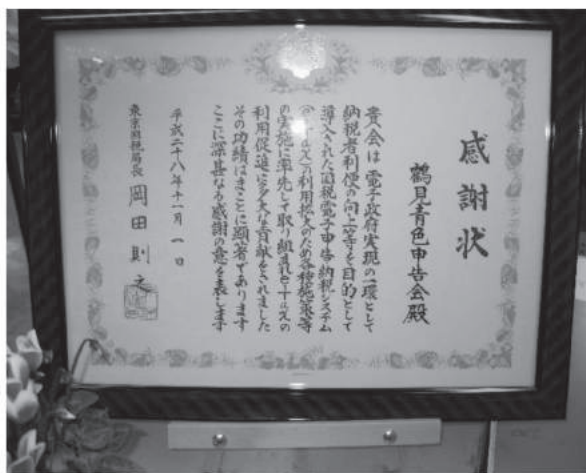 感謝状
鶴見青色申告会殿
貴会は電子政府実現の一環として
納税者利便の向上等を目的として
導入された国税電子申告・納税システム
の利用拡大のため各種施策等
の実施に率先して取り組まれe-Taxの
利用促進に多大な貢献をされました
その功績はまことに顕著であります
ここに深甚なる感謝の意を表します
平成二十八年十一月一日
東京国税局長 岡田則之